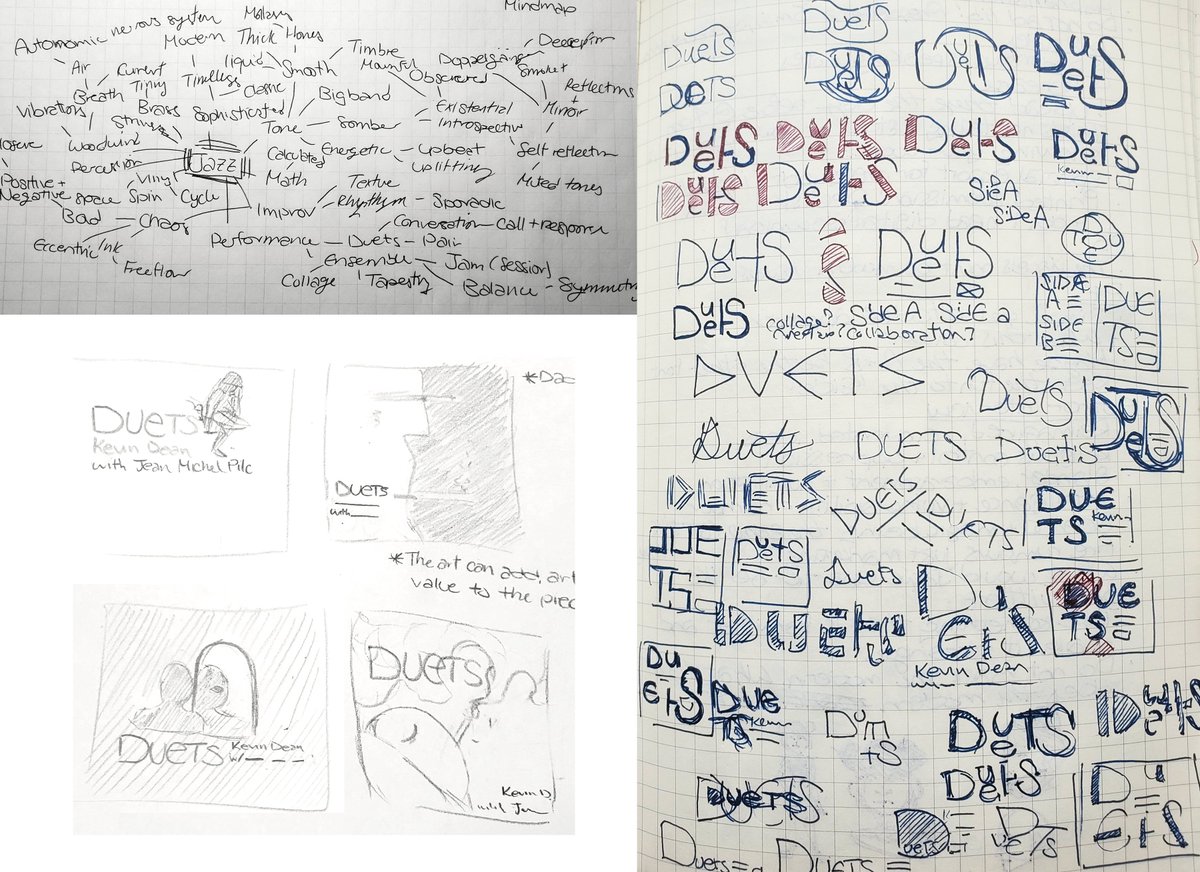 Mindmap
Autonomic nervous system
Modern
Thick
Hones
Air
Current
liquid
Smooth
Timbre
Mournful
Obscured
Doppelgang
Smoke
Deception
Breath
Tinny
Timeless
Classic
Big band
Existential
Reflections
+
Mirror
Vibrations
Brass
Sophisticated
Introspective
Strings
Tone
Somber
Woodwind
Jazz
Energetic
upbeat
Self reflection
Percussion
Calculated
uplifting
Math
Muted tones
Positive +
Negative space
Vinyl
Spin
Cycle
Texture
Rhythm
Sporadic
Bad
Chaos
Improv
Conversation
Call + response
Eccentric
Ink
Performance
Duets
Pair
Freeflow
Ensemble
Jam (session)
Collage
Tapestry
Balance
Symmetry
DUETS
Kevin Dean
with Jean Michel Pilc
DUETS
with
*The art can add art
value to the piec
DUETS
Kevin Dean
w/
DUETS
Kevin D
with Je
DUETS
DUETS
DUETS
DUETS
DUETS
DUETS
DUETS
DUETS
DUETS
DUETS
DUETS
Kevin
DUETS
DUETS
SIDE A
SIDE A
DUETS
DUETS
DUETS
SIDE
A
SIDE
B
DUE
TS
DUETS
Collage?
Side A
Side a
Collaboration?
DUETS
DUETS
DUETS
Duets
DUETS
Duets
DUETS
DUETS
DUETS
DUE
TS
Kevin
DUE
TS
DUETS
Duets
DUETS
DUETS
Kevin Dean
DUE
TS
DUETS
DUE
TS
Kevin
DUETS
DUETS
DUETS
DUETS
DUETS
DUETS
DUETS
DUETS
DUETS